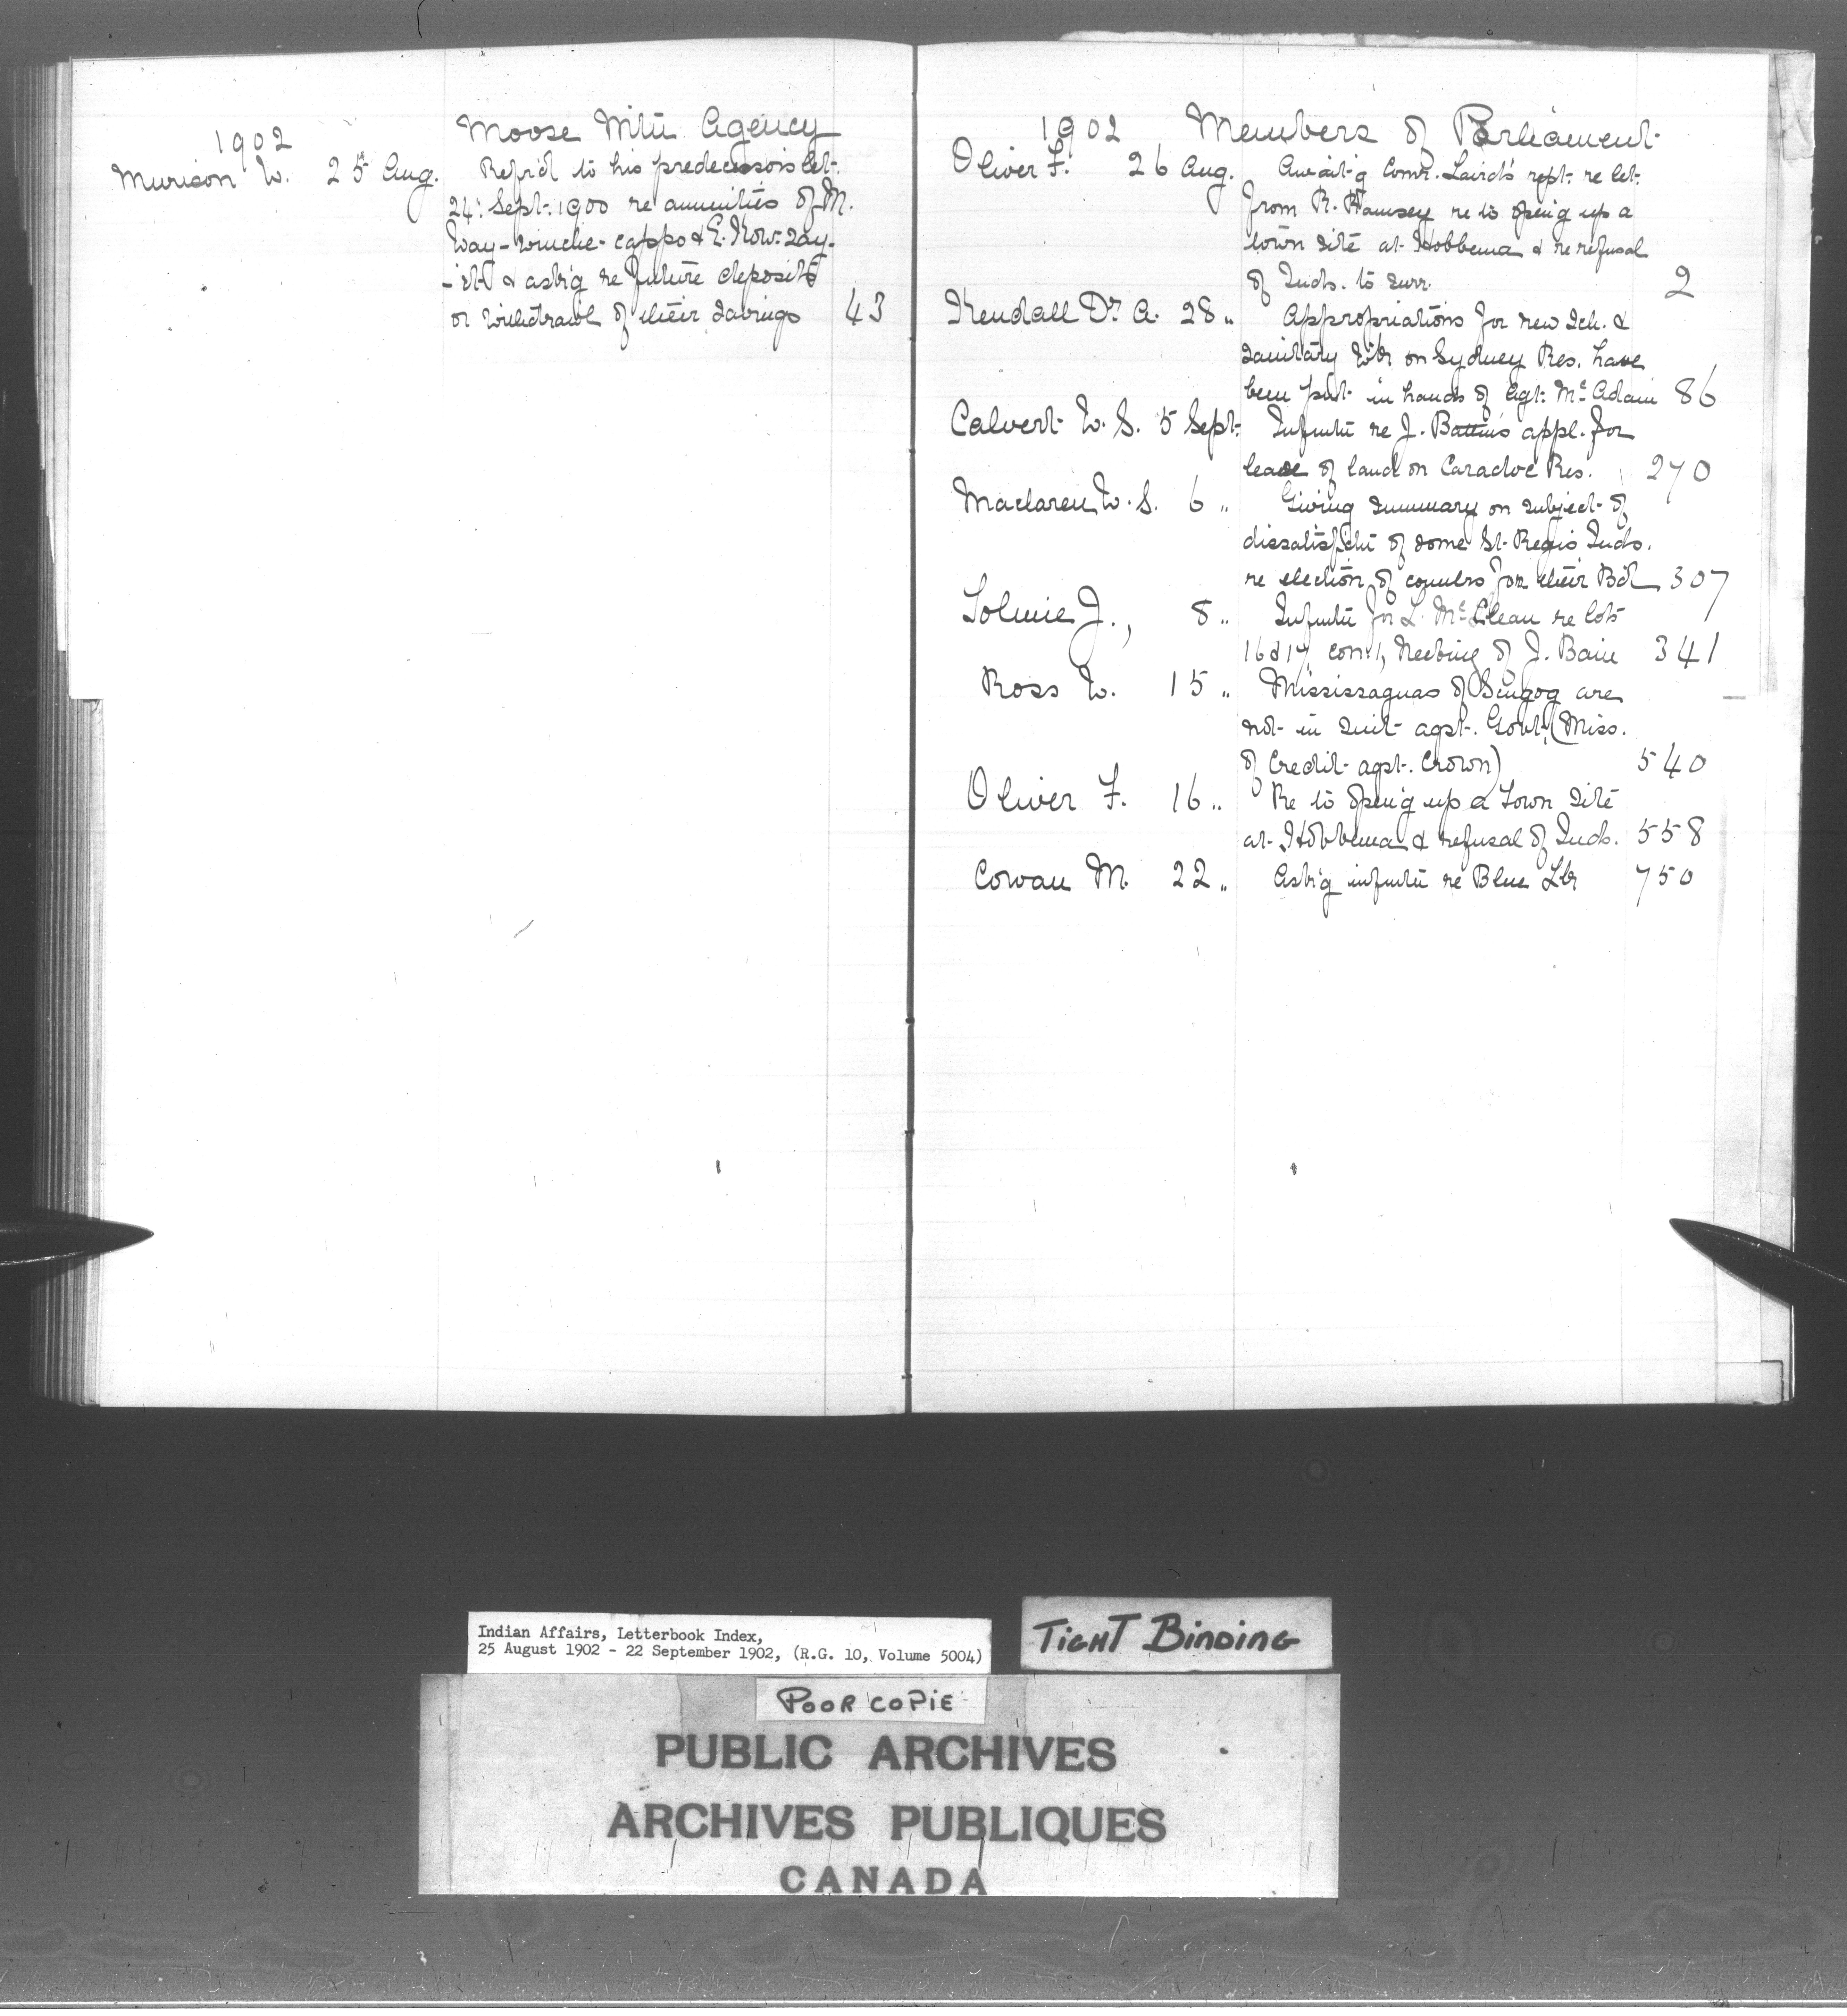 1902 Moose Mtn Agency
Murison W. 25 Aug. Refr'd to his predecessor's let.
24. Sept. 1900 re annuities of M.
Way-winche-cappo & E. Kow-say-
& ask'g re future deposits
or withdrawl of their savings 43
1902 Members of Parliament
Oliver F. 26 Aug. Await'g Comr. Laird's rept. re let.
from R. Ramsey re to open'g up a
town site at Hobbema & re refusal
of Inds. to surr. 2
Kendall Dr A. 28 " Appropriations for new Sch. &
sanitary wk on Sydney Res. have
been put in hands of Agt. McAdam 86
Calvert W. S. 5 Sept. Infmtn re J. Battin's appl. for
lease of land on Caradoc Res. 270
Maclaren W. S. 6 " Giving summary on subject of
dissatisfctn of some St. Regis Inds.
re election of counlrs for their Bd 307
Tolmie J., 8 " Infmtn for L. McLean re lots
16 & 17, con. 1, Neebing of J. Bain 341
Ross W. 15 " Mississaguas of Scugog are
not in suit agst. Govt. (Miss.
of Credit agst. Crown) 540
Oliver F. 16 " Re to open'g up a Town site
at Hobbema & refusal of Inds. 558
Cowan M. 22 " Ask'g infmtn re Blue Lbr 750
Indian Affairs, Letterbook Index,
25 August 1902 - 22 September 1902, (R.G. 10, Volume 5004)
TIGHT BINDING
POOR COPIE
PUBLIC ARCHIVES
ARCHIVES PUBLIQUES
CANADA